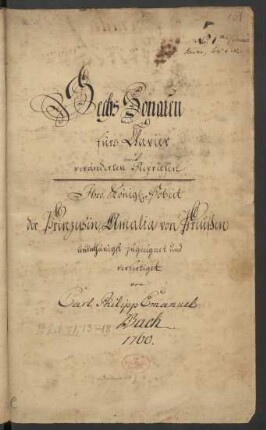 Sechs Sonaten
fürs Clavier
mit
veränderten Reprisen
Ihro Königl. Hoheit
der Prinzeßin Amalia von Preußen
unterthänigst zugeeignet und
verfertiget
von
Carl Philipp Emanuel
Bach
1760.